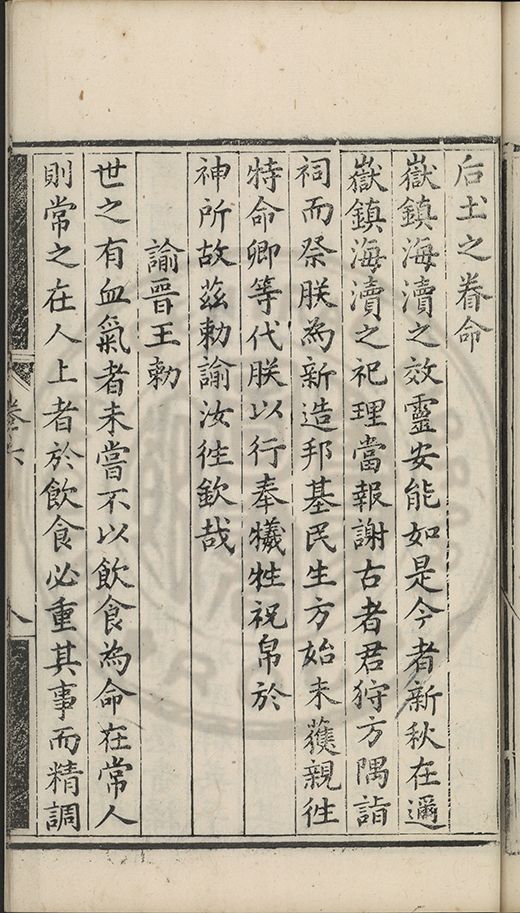 后土之眷命
嶽鎮海瀆之效靈安能如是今者新秋在邇
嶽鎮海瀆之祀理當報謝古者君狩方隅詣
祠而祭朕為新造邦基民生方始未獲親徃
特命卿等代朕以行奉犧牲祝帛於
神所故茲勅諭汝徃欽哉
諭晉王勅
世之有血氣者未嘗不以飲食為命在常人
則常之在人上者於飲食必重其事而精調
卷六
八